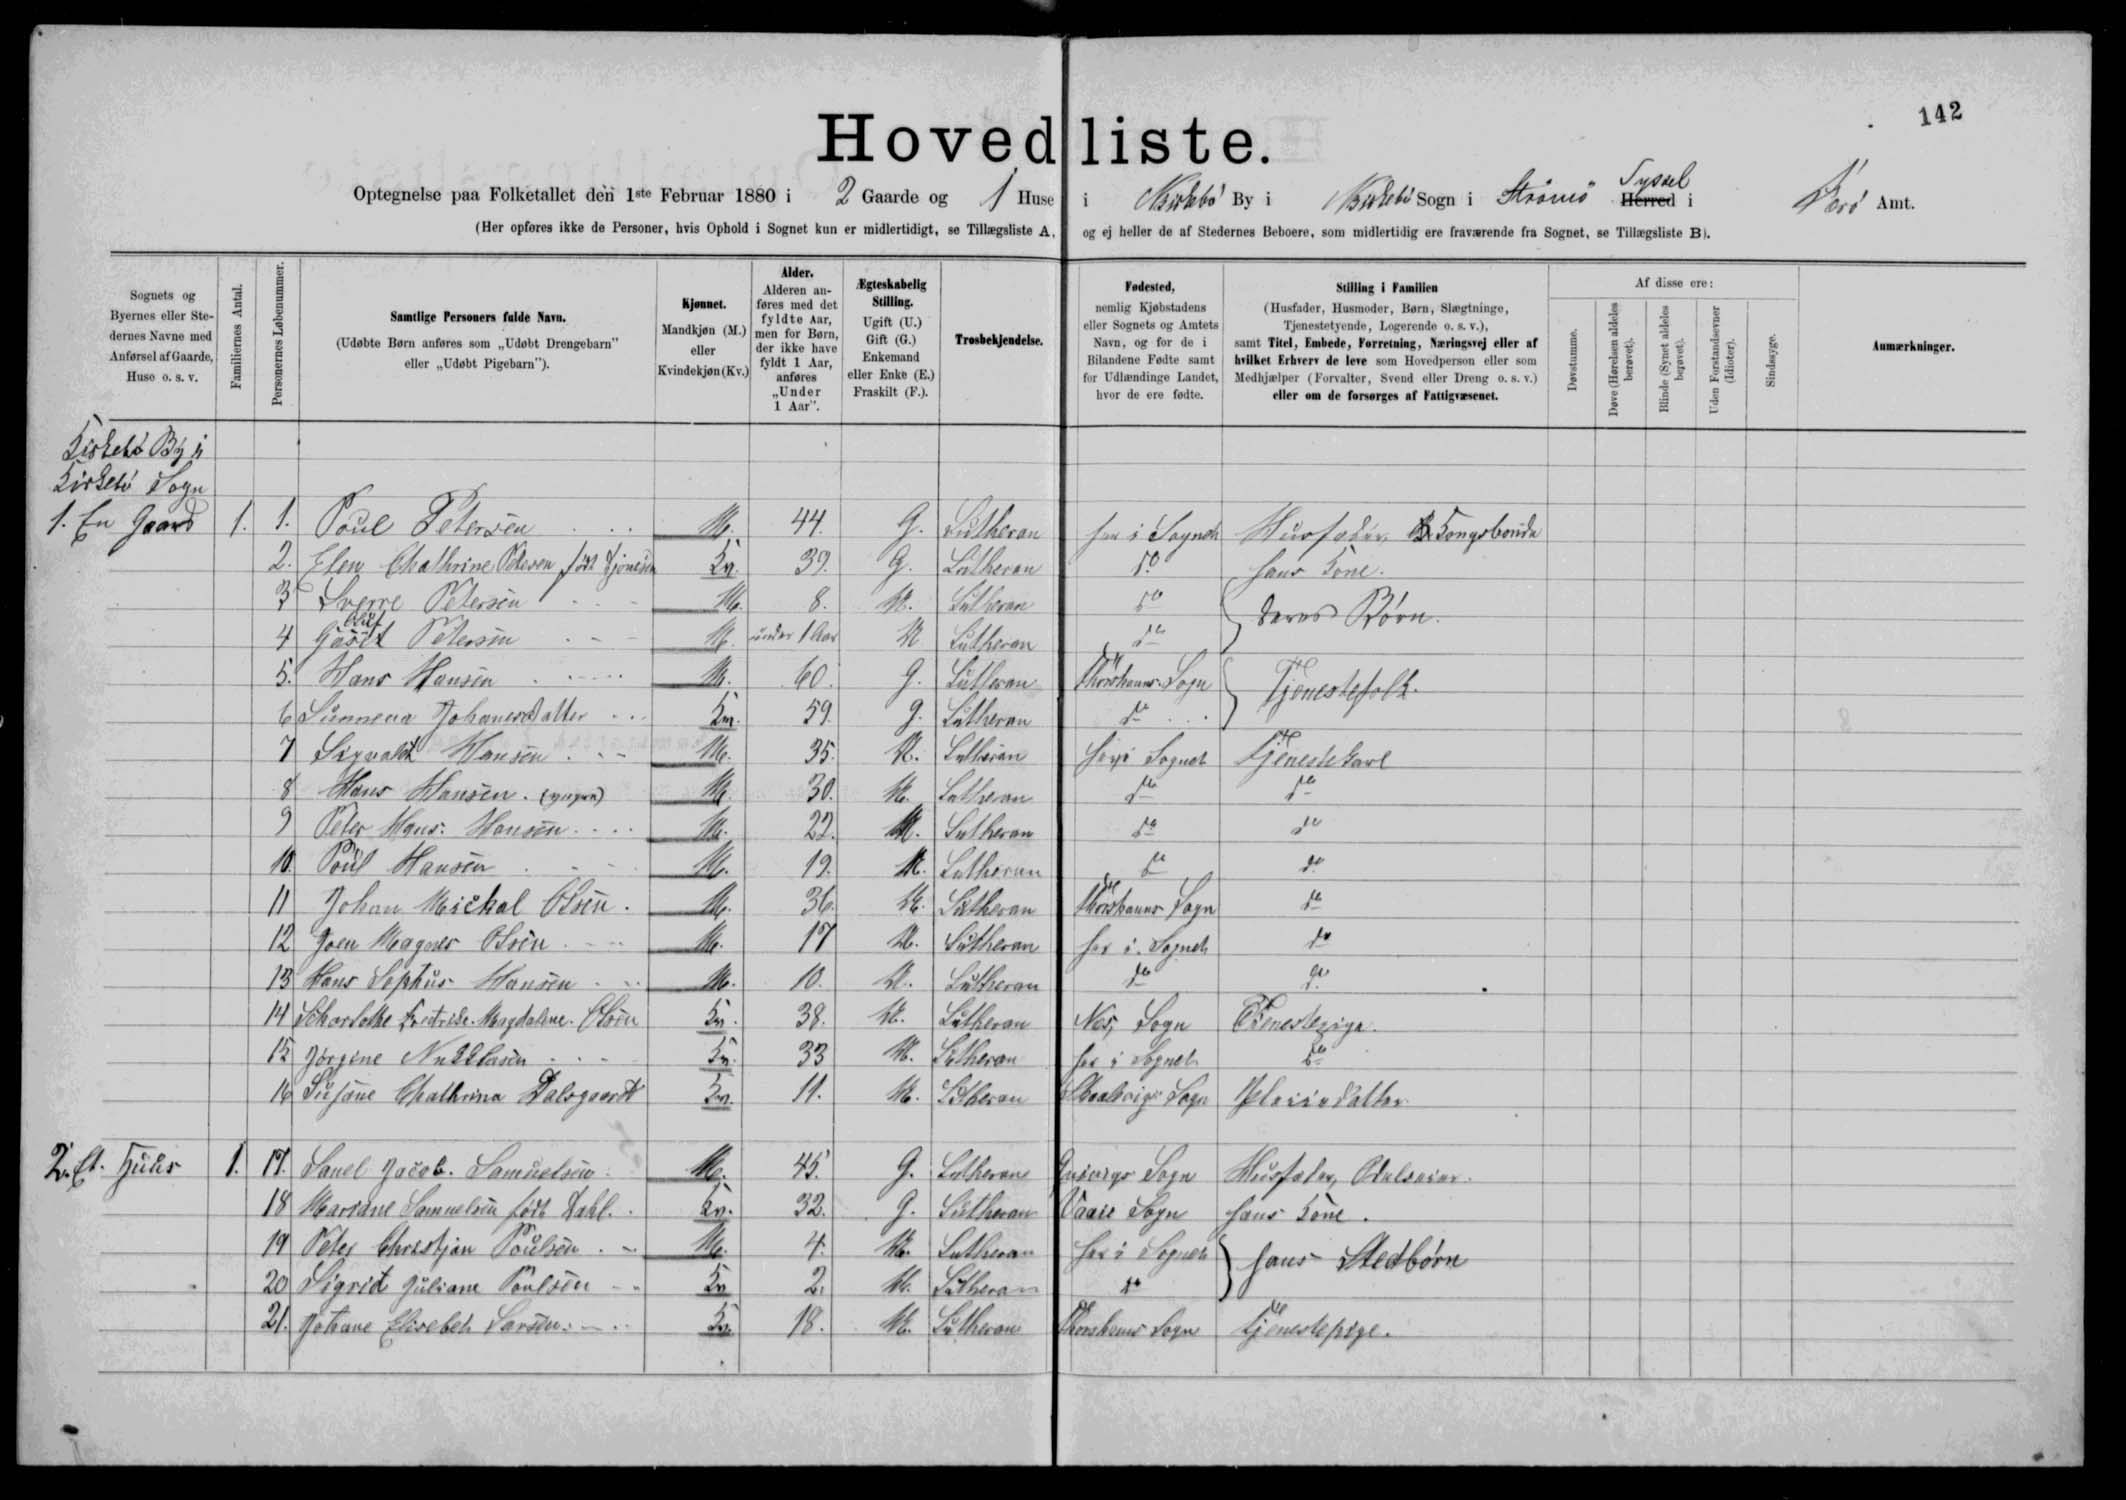 142
Hovedliste.
Optegnelse paa Folketallet den 1ste Februar 1880 i 2 Gaarde og 1 Huse i Kirkebø By i Kirkebø Sogn i Strømø Herred Syssel i Færø Amt.
(Her opføres ikke de Personer, hvis Ophold i Sognet kun er midlertidigt, se Tillægsliste A, og ej heller de af Stedernes Beboere, som midlertidig ere fraværende fra Sognet, se Tillægsliste B).
Sognets og Byernes eller Stedernes Navne med Anførsel af Gaarde, Huse o. s. v.
Familiernes Antal.
Personernes Løbenummer.
Samtlige Personers fulde Navn.
(Udøbte Børn anføres som „Udøbt Drengebarn" eller „Udøbt Pigebarn").
Kjønnet.
Mandkjøn (M.) eller Kvindekjøn (Kv.)
Alder.
Alderen anføres med det fyldte Aar, men for Børn, der ikke have fyldt 1 Aar, anføres „Under 1 Aar".
Ægteskabelig Stilling.
Ugift (U.) Gift (G.) Enkemand eller Enke (E.) Fraskilt (F.).
Trosbekjendelse.
Fødested,
nemlig Kjøbstadens eller Sognets og Amtets Navn, og for de i Bilandene Fødte samt for Udlændinge Landet, hvor de ere fødte.
Stilling i Familien
(Husfader, Husmoder, Børn, Slægtninge, Tjenestetyende, Logerende o. s. v.),
samt Titel, Embede, Forretning, Næringsvej eller af hvilket Erhverv de leve som Hovedperson eller som Medhjælper (Forvalter, Svend eller Dreng o. s. v.) eller om de forsørges af Fattigvæsenet.
Af disse ere:
Døvstumme.
Døve (Hørelsen aldeles berøvet).
Blinde (Synet aldeles berøvet).
Uden Forstandsevner (Idioter).
Sindssyge.
Anmærkninger.
Kirkebø By i
Kirkebø Sogn
1. En Gaard 1. 1. Poul Petersen M. 44. G. Lutheran her i Sognet Husfader, Kongsbonde
2. Elen Chathrine Petersen født Kv. 39. G. Lutheran do hans Kone.
3 Sverre Petersen M. 8. U. Lutheran do deres Børn.
4 Petersen M. under 1 Aar U Lutheran do
5. Hans Hansen M. 60. G. Lutheran Thorshavns Sogn Tjenestefolk.
6 Sunneva Johanesdatter Kv. 59. G. Lutheran do
7 Sigvald Hansen M. 35. U. Lutheran her i Sognet Tjenestekarl
8 Hans Hansen. (yngre) M. 30. U. Lutheran do do
9 Peter Hans. Hansen M. 22. U. Lutheran do do
10. Poul Hansen M. 19. U. Lutheran do do
11 Johan Michal Olsen. M. 36. U. Lutheran Thorshavns Sogn do
12 Joen Magnus Olsen M. 17 U. Lutheran her i Sognet do
13 Hans Sophus Hansen M. 10. U. Lutheran do do
14 Magdalene. Olsen Kv. 38. U. Lutheran Nes, Sogn Tjenestepige.
15 Jørgine Kv. 33 U. Lutheran her i Sognet do
16 Susane Chathrina Dalsgaard Kv. 11. U. Lutheran Sogn Pleiedatter
2. Et Huus 1. 17. Jacob. Samuelsen M. 45. G. Lutheran Sogn Husfader, Odelseier.
18 Mariane Samuelsen født Dahl. Kv. 32. G. Lutheran Sogn hans Kone.
19 Peter Christjan Poulsen M. 4. U. Lutheran her i Sognet hans Stedbørn
20 Sigrid Juliane Poulsen Kv 2. U. Lutheran do
21. Johane Elisebet Larsen Kv. 18. U. Lutheran Thorshavns Sogn Tjenestepige.